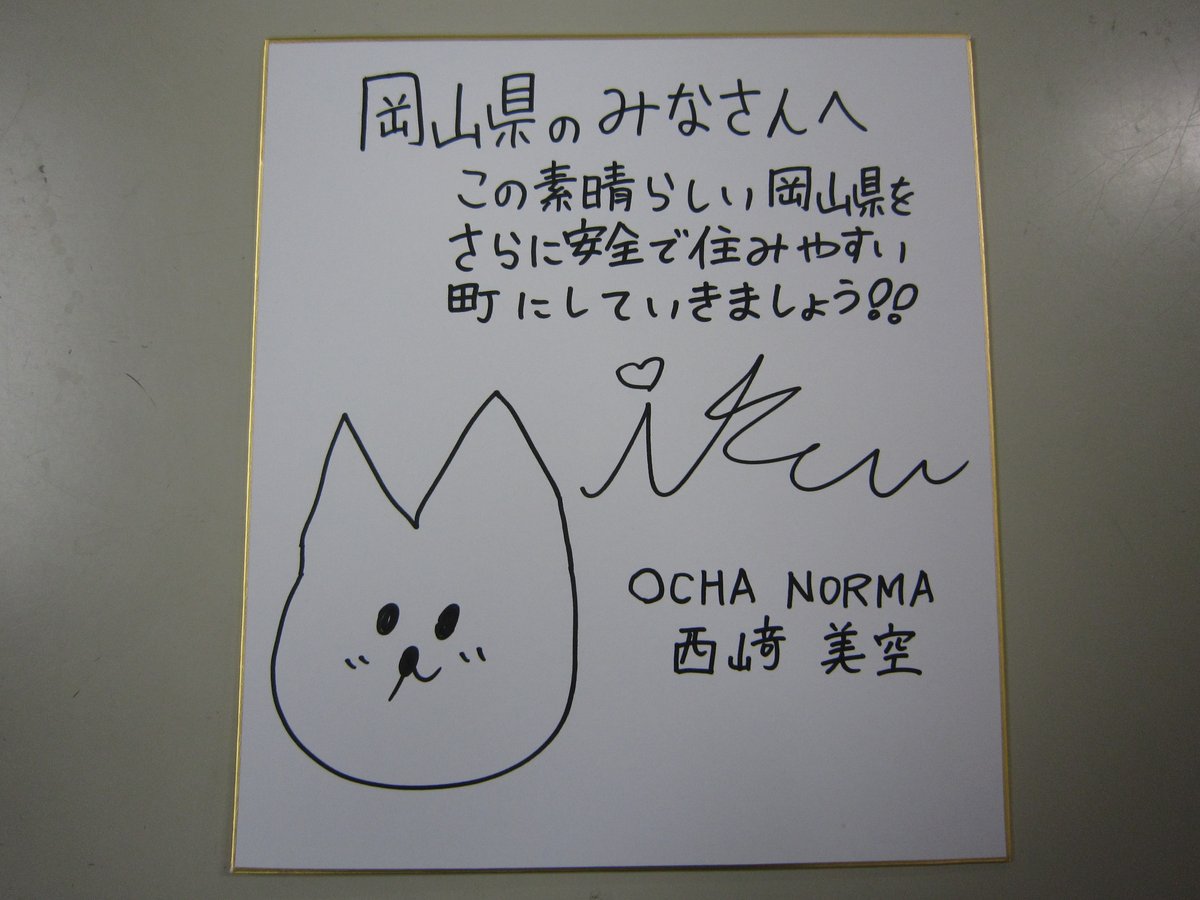 岡山県のみなさんへ
この素晴らしい岡山県を
さらに安全で住みやすい
町にしていきましょう!!
Miku
OCHA NORMA
西﨑 美空